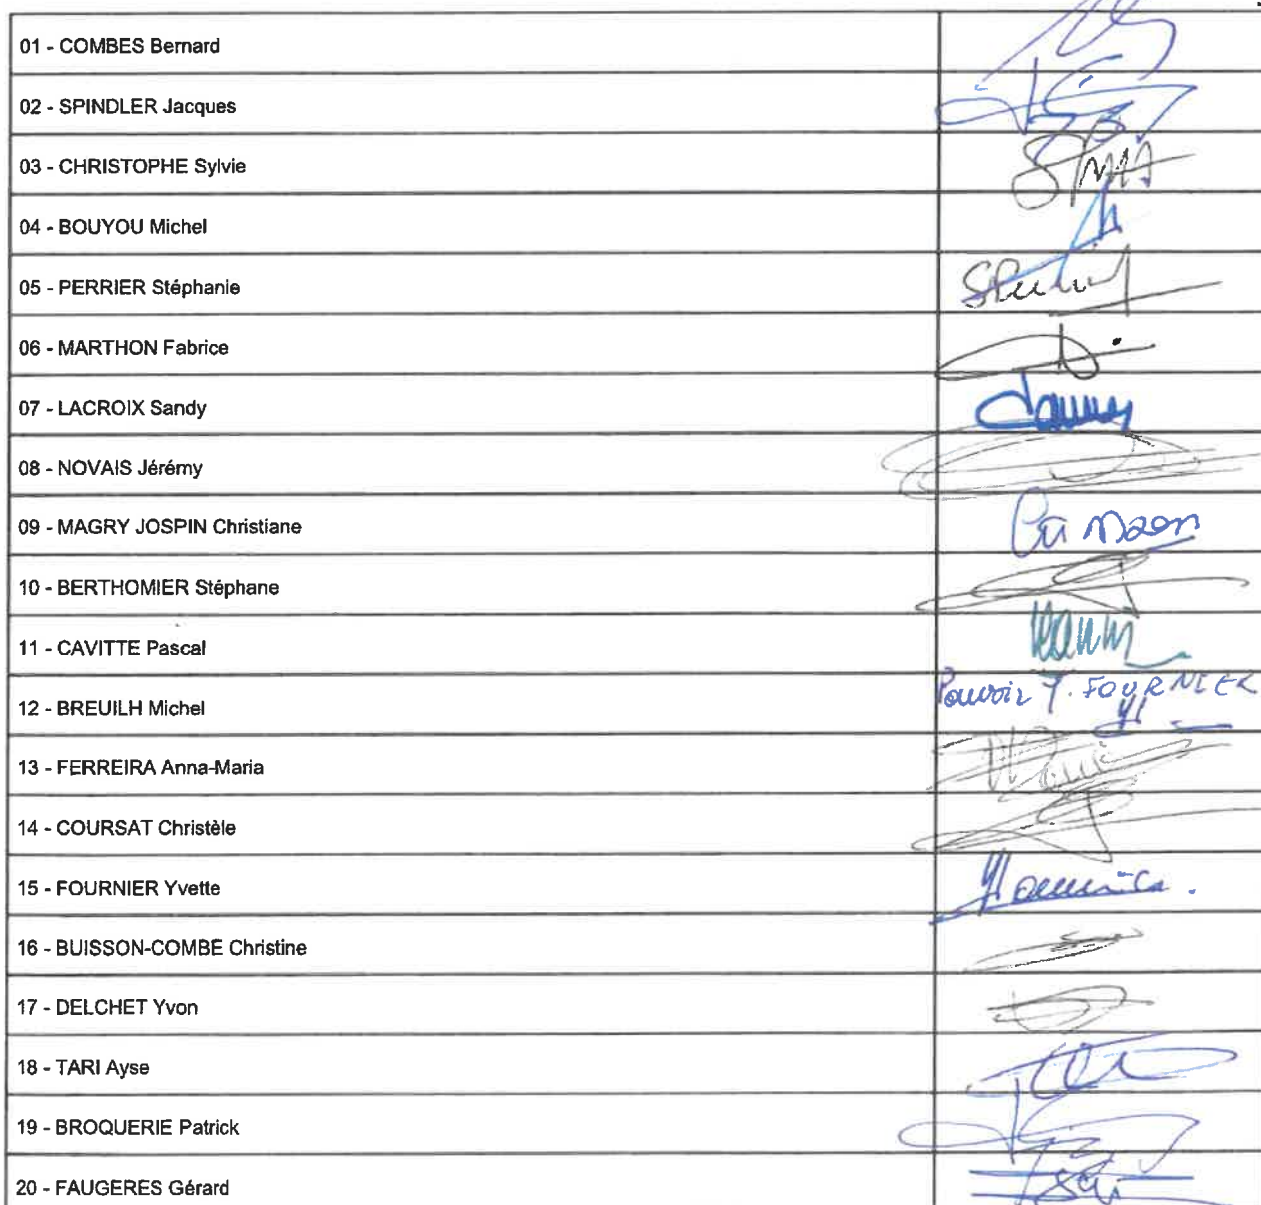 01 - COMBES Bernard
02 - SPINDLER Jacques
03 - CHRISTOPHE Sylvie
04 - BOUYOU Michel
05 - PERRIER Stéphanie
06 - MARTHON Fabrice
07 - LACROIX Sandy
08 - NOVAIS Jérémy
09 - MAGRY JOSPIN Christiane
10 - BERTHOMIER Stéphane
11 - CAVITTE Pascal
Pouvoir Y. FOURNIER
12 - BREUILH Michel
13 - FERREIRA Anna-Maria
14 - COURSAT Christèle
15 - FOURNIER Yvette
16 - BUISSON-COMBE Christine
17 - DELCHET Yvon
18 - TARI Ayse
19 - BROQUERIE Patrick
20 - FAUGERES Gérard